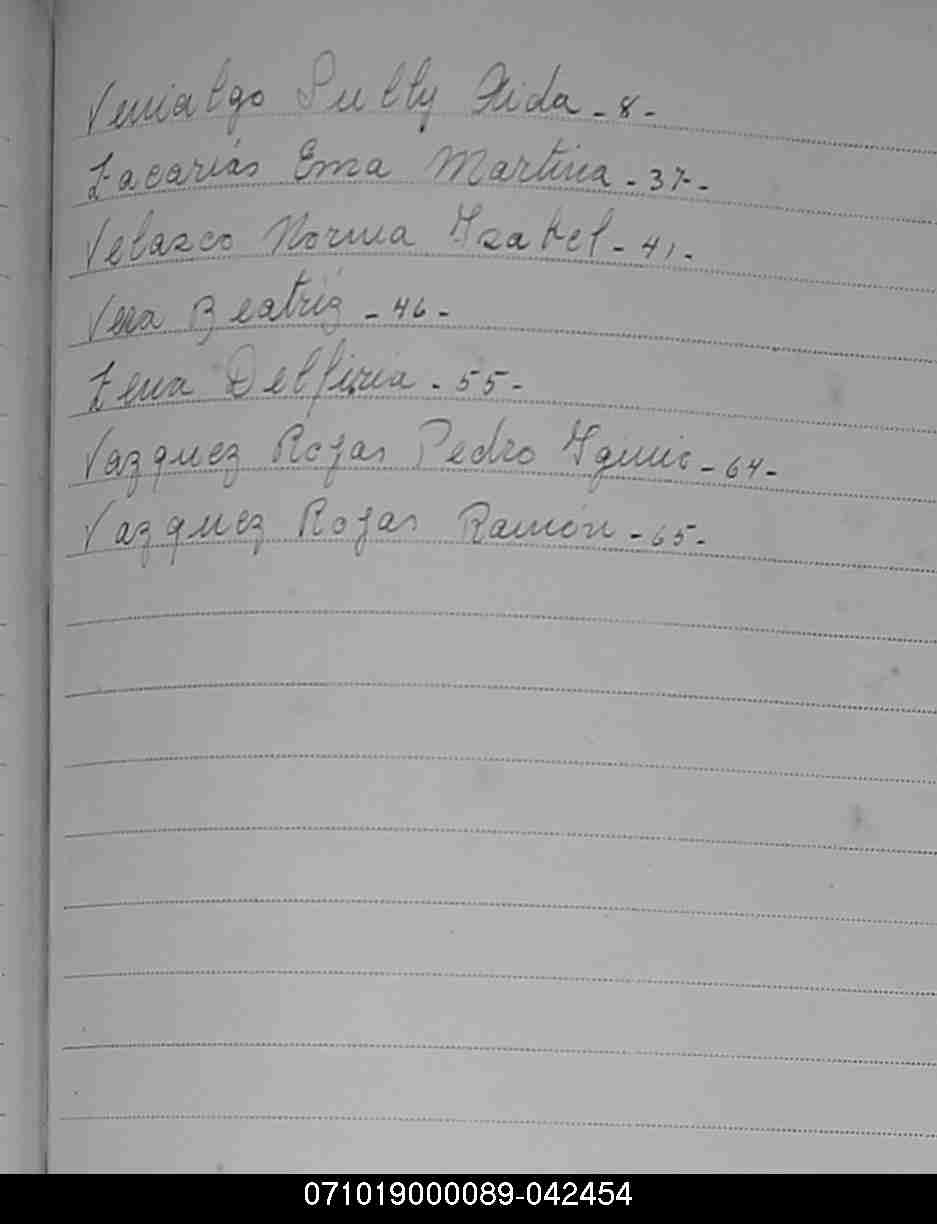 Venialgo Sully Aida - 8 -
Zacarías Ema Martina - 37 -
Velazco Norma Ysabel - 41 -
Vera Beatriz - 46 -
Zena Delfina - 55 -
Vazquez Rojas Pedro Yginio - 64 -
Vazquez Rojas Ramón - 65 -
071019000089-042454